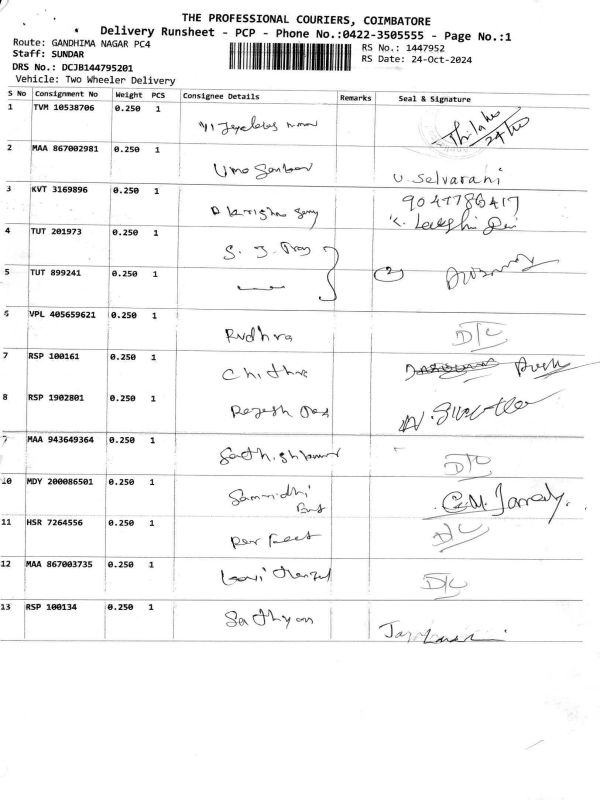 THE PROFESSIONAL COURIERS, COIMBATORE
Delivery Runsheet - PCP - Phone No.:0422-3505555 - Page No.:1
Route: GANDHIMA NAGAR PC4
RS No.: 1447952
Staff: SUNDAR
RS Date: 24-Oct-2024
DRS No.: DCJB144795201
Vehicle: Two Wheeler Delivery
S No Consignment No Weight PCS Consignee Details Remarks Seal & Signature
1 TVM 10538706 0.250 1
24/10
2 MAA 867002981 0.250 1
U. Selvarani
3 KVT 3169896 0.250 1
9047786417
4 TUT 201973 0.250 1
S. J.
5 TUT 899241 0.250 1
2
6 VPL 405659621 0.250 1
Rudhra D/C
7 RSP 100161 0.250 1
Chithra
8 RSP 1902801 0.250 1
Rajesh
9 MAA 943649364 0.250 1
Sathishkumar D/C
10 MDY 200086501 0.250 1
Sannidhi
11 HSR 7264556 0.250 1
Perfect D/C
12 MAA 867003735 0.250 1
D/C
13 RSP 100134 0.250 1
Sathyan